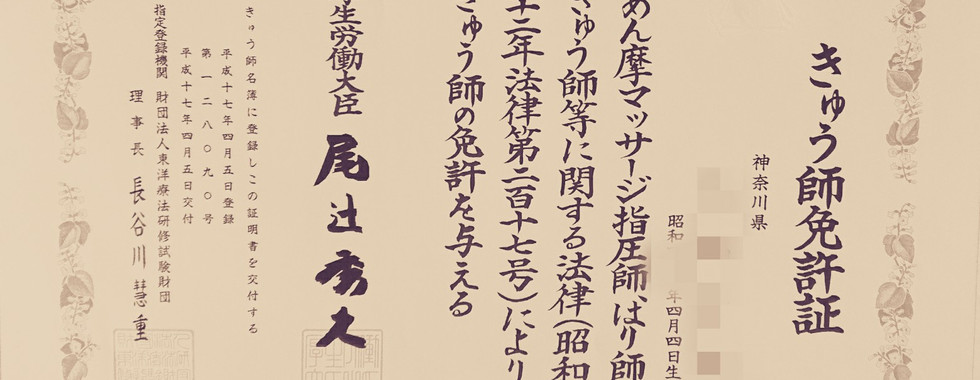 きゅう師免許証
神奈川県
昭和 年四月四日生
あん摩マッサージ指圧師、はり師
きゅう師等に関する法律(昭和
十二年法律第二百十七号)により
きゅう師の免許を与える
生労働大臣 尾辻秀久
きゅう師名簿に登録しこの証明書を交付する
平成十七年四月五日登録
第一二八〇九〇号
平成十七年四月五日交付
指定登録機関 財団法人東洋療法研修試験財団
理事長 長谷川慧重